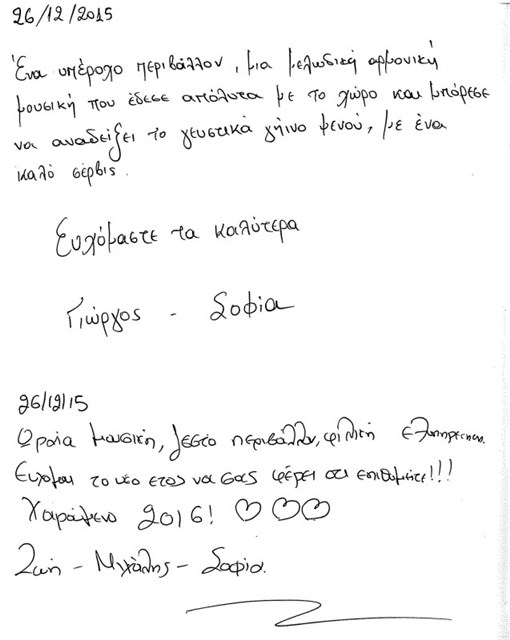 26/12/2015
Ένα υπέροχο περιβάλλον, μια μελωδική αρμονική
μουσική που έδεσε απόλυτα με το χώρο και μπόρεσε
να αναδείξει το γευστικά γήινο μενού, με ένα
καλό σέρβις.
Ευχόμαστε τα καλύτερα
Γιώργος - Σοφία
26/12/15
Ωραία μουσική, ζεστό περιβάλλον, φιλική
Ευχομαι το νεο ετος να σας φέρει οτι επιθυμειτε!!!
Χαρούμενο 2016! ♡♡♡
Ζωή - Μιχάλης - Σοφία.